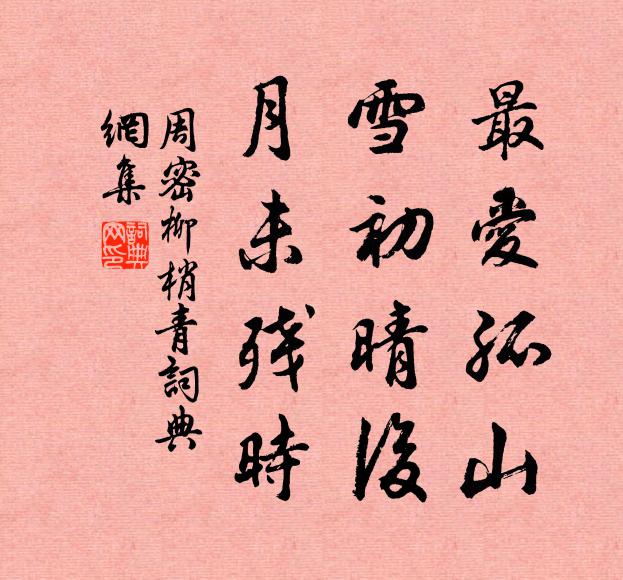 最愛孤山
雪初晴後
月未殘時
周密柳梢青詞典
網集
詞典
网印